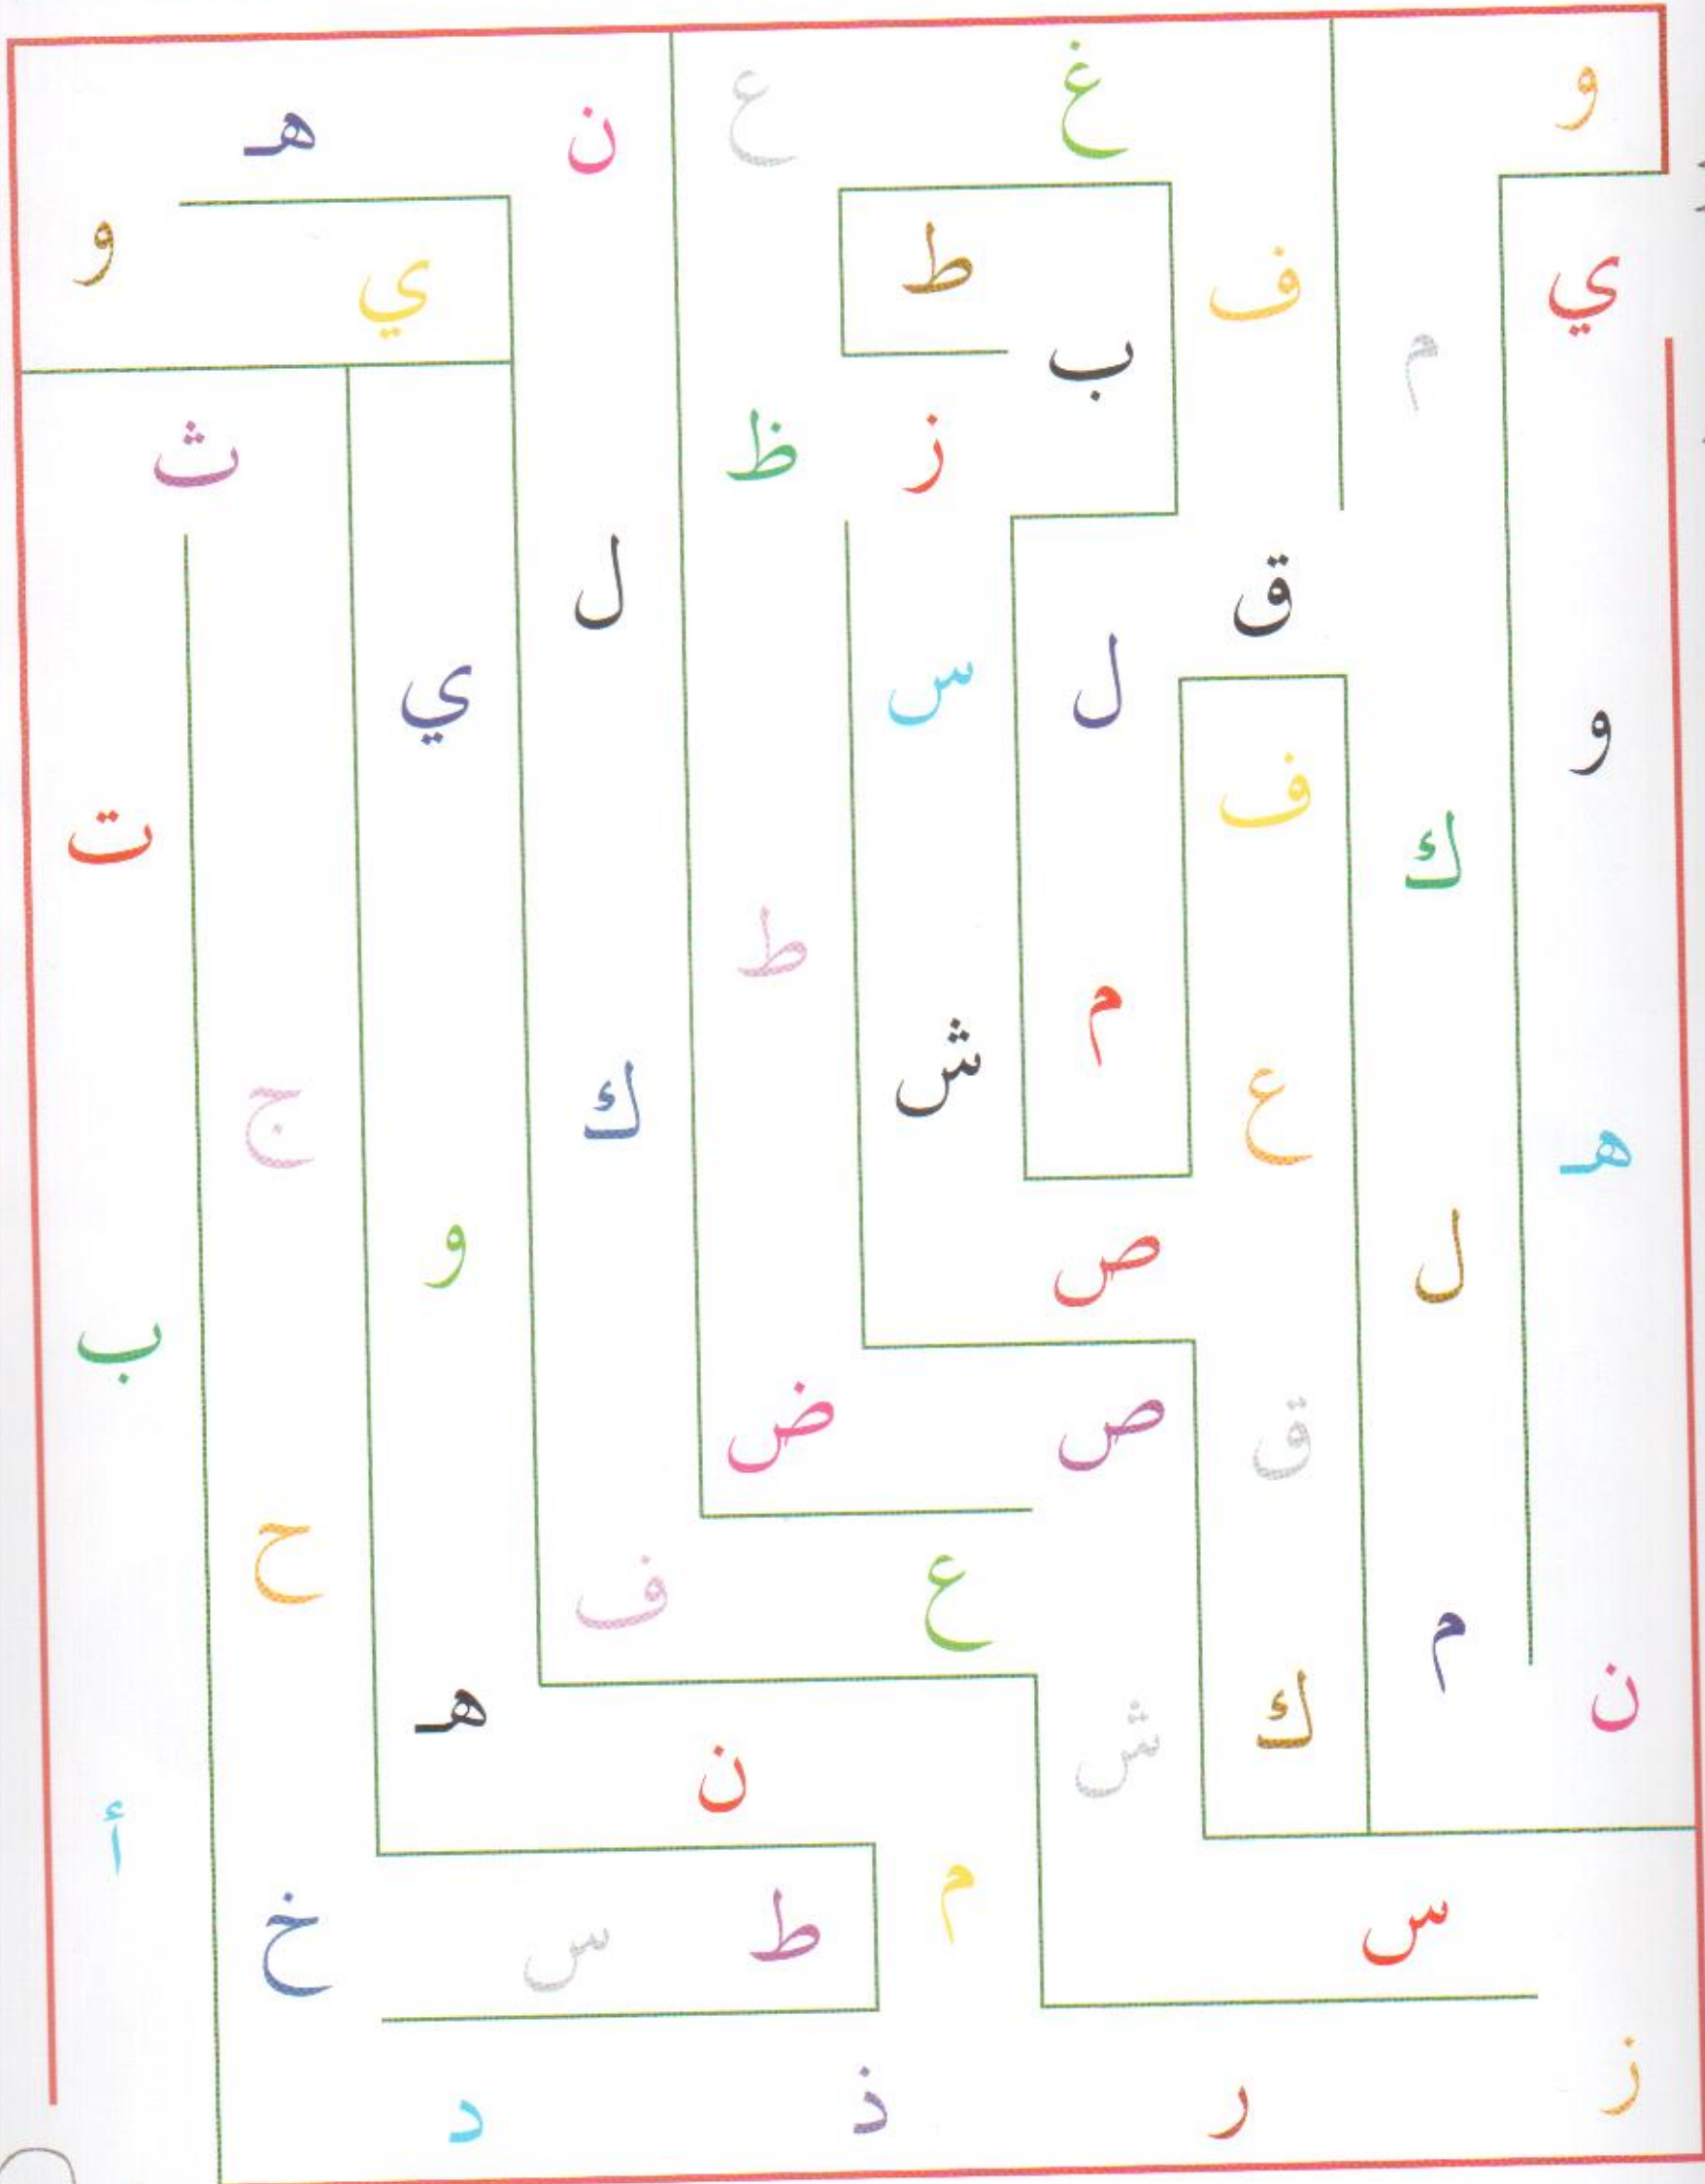 و غ ع ن هـ
ي ف ط ي و
م ب
ز ظ ث
ق ل
ل س ي
و ف ك ت
ط
م ش ع ك ج
هـ ل ص و
ب
ق ص ض
ع ف ح
ن م ك ش ن هـ
أ
س م ط س خ
ز ر ذ د